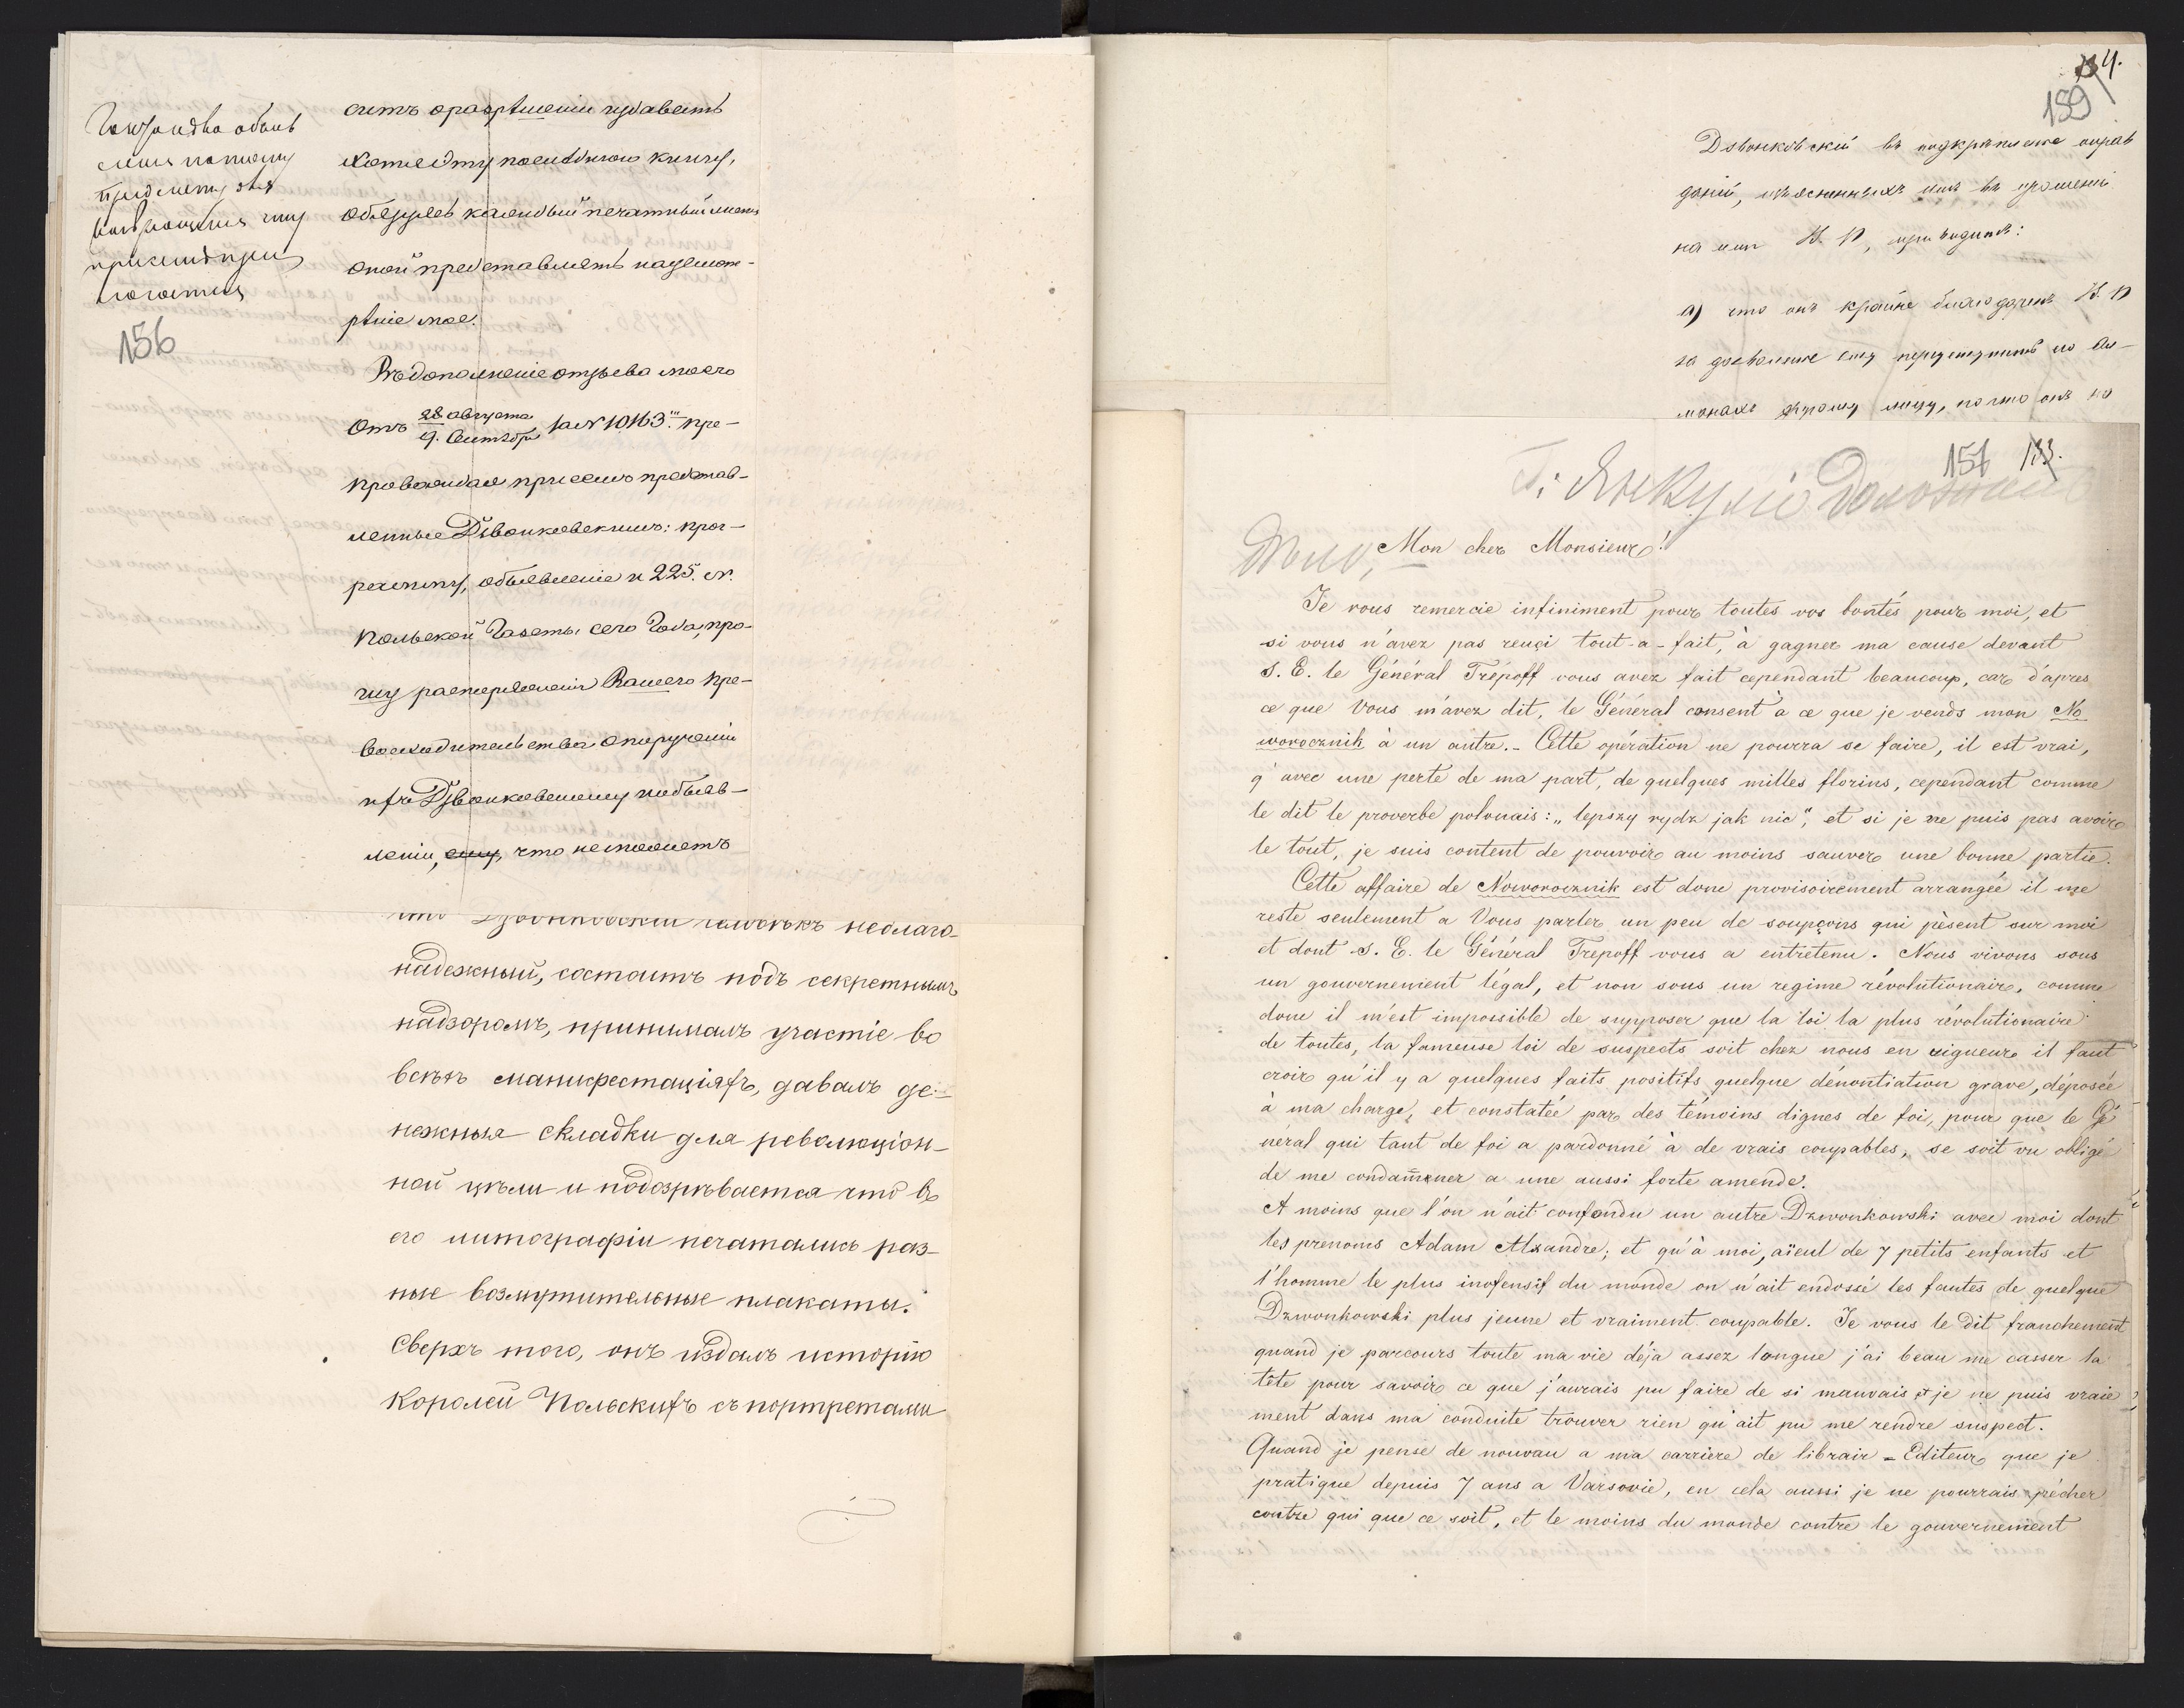 156
ситъ о разрѣшеніи издавать
хотя эту полезную книгу,
обязуясь каждый печатный листъ
оной представлять на усмот-
рѣніе мое.
Въ дополненіе отзыва моего
отъ 28 августа / 9. Сентяб. за № 10163. пре-
провождая при семъ представ-
ленные Дзвонковскимъ: прог-
рамму, объявленіе и 225. №.
Польской Газеты сего Года, про-
шу распоряженія Вашего Пре-
восходительства о порученіи
Дзвонковскому и объяв-
леніи, ему, что не можетъ
что Дзвонковскій человѣкъ неблаго-
надежный, состоитъ подъ секретнымъ
надзоромъ, принималъ участіе во
всѣхъ манифестаціяхъ, давалъ де-
нежныя складки для революціон-
ной цѣли и подозрѣвается что въ
его литографіи печатались раз-
ные возмутительные плакаты.
Сверхъ того, онъ издалъ исторію
Королей Польскихъ съ портретами
4.
159
Дзвонковскій въ подкрѣпленіе оправ
даній, изъясненныхъ имъ въ прошеніи
на имя В. П., приводитъ:
а) что онъ крайне благодаренъ В. П
за дозволеніе ему переуступить
другому лицу, но что онъ
156 133.
Mon cher Monsieur!
Je vous remercie infiniment pour toutes vos bontés pour moi, et
si vous n'avez pas reuçi tout-a-fait, à gagner ma cause devant
S. E. le Général Trépoff vous avez fait cependant beaucoup, car d'apres
ce que Vous m'avez dit, le Géneral consent à ce que je vends mon No
worocznik à un autre.- Cette opération ne pourra se faire, il est vrai,
q'avec une perte de ma part, de quelques milles florins, cependant comme
le dit le proverbe polonais: „lepszy rydz jak nic", et si je ne puis pas avoir
le tout, je suis content de pouvoir au moins sauver une bonne partie.
Cette affaire de Noworocznik est donc provisoirement arrangée il me
reste seulement a Vous parler un peu de soupçons qui pèsent sur moi
et dont S. E. le Général Trepoff vous a entretenu. Nous vivons sous
un gouvernement légal, et non sous un regime révolutionaire, comme
donc il m'est impossible de supposer que la loi la plus révolutionaire
de toutes, la fameuse loi de suspects soit chez nous en vigueur il faut
croir qu'il y a quelques faits positifs quelque dénontiation grave, déposée
à ma charge, et constatée par des témoins dignes de foi, pour que le Gé
néral qui tant de foi a pardonné à de vrais coupables, se soit vu obligé
de me condamner a une aussi forte amende.
A moins que l'on n'ait confondu un autre Dzwonkowski avec moi dont
les prenoms Adam Alxandre; et qu'à moi, aïeul de 7 petits enfants et
l'homme le plus inofensif du monde on n'ait endossé les fautes de quelque
Dzwonkowski plus jeune et vraiment coupable. Je vous le dit franchement
quand je parcours toute ma vie déja assez longue j'ai beau me casser la
tête pour savoir ce que j'aurais pu faire de si mauvais et je ne puis vraie
ment dans ma conduite trouver rien qu'ait pu me rendre suspect.
Quand je pense de nouvau a ma carriere de librair - Editeur que je
pratique depuis 7 ans a Varsovie, en cela aussi je ne pourrais pécher
contre qui que ce soit, et le moins du monde contre le gouvernement